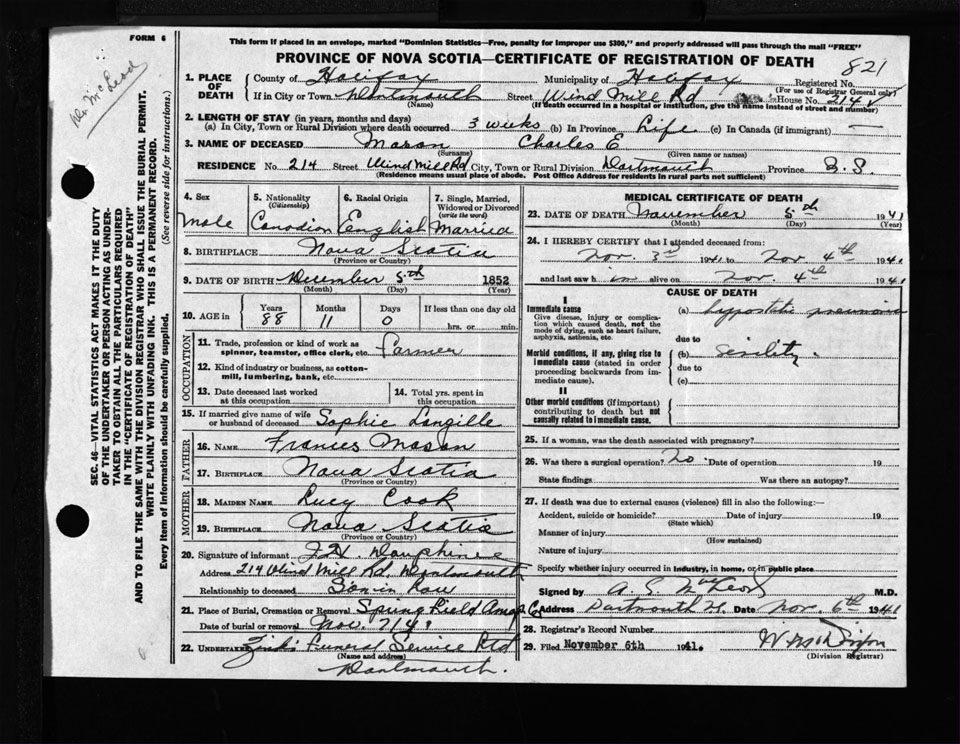 FORM 6
Dr. McLeod
This form if placed in an envelope, marked "Dominion Statistics—Free, penalty for improper use $300," and properly addressed will pass through the mail "FREE"
PROVINCE OF NOVA SCOTIA—CERTIFICATE OF REGISTRATION OF DEATH
821
1. PLACE OF DEATH County of Halifax Municipality of Halifax Registered No.
(For use of Registrar General only)
If in City or Town Dartmouth Street Wind Mill Rd House No. 214
(Name) (If death occurred in a hospital or institution, give the name instead of street and number)
2. LENGTH OF STAY (in years, months and days)
(a) In City, Town or Rural Division where death occurred 3 weeks (b) In Province Life (c) In Canada (if immigrant) —
3. NAME OF DECEASED Mason Charles E
(Surname) (Given name or names)
RESIDENCE No. 214 Street Wind Mill Rd City, Town or Rural Division Dartmouth Province N.S.
(Residence means usual place of abode. Post Office Address for residents in rural parts not sufficient)
4. Sex male
5. Nationality (Citizenship) Canadian
6. Racial Origin English
7. Single, Married, Widowed or Divorced (write the word) Married
8. BIRTHPLACE Nova Scotia
(Province or Country)
9. DATE OF BIRTH December 5th 1852
(Month) (Day) (Year)
10. AGE in Years 88 Months 11 Days 0 If less than one day old hrs. or min.
OCCUPATION
11. Trade, profession or kind of work as spinner, teamster, office clerk, etc. Farmer
12. Kind of industry or business, as cotton-mill, lumbering, bank, etc.
13. Date deceased last worked at this occupation
14. Total yrs. spent in this occupation
15. If married give name of wife or husband of deceased Sophie Langille
FATHER
16. NAME Frances Mason
17. BIRTHPLACE Nova Scotia
(Province or Country)
MOTHER
18. MAIDEN NAME Lucy Cook
19. BIRTHPLACE Nova Scotia
(Province or Country)
20. Signature of informant Dauphinee
Address 214 Wind Mill Rd, Dartmouth
Relationship to deceased Son in law
21. Place of Burial, Cremation or Removal Springfield Annap. Co
Date of burial or removal Nov. 7/41
22. UNDERTAKER Zink's Funeral Service Ltd
(Name and address)
Dartmouth.
MEDICAL CERTIFICATE OF DEATH
23. DATE OF DEATH November 5th 1941
(Month) (Day) (Year)
24. I HEREBY CERTIFY that I attended deceased from:
Nov. 3rd 1941 to Nov 4th 1941
and last saw h im alive on Nov. 4th 1941
CAUSE OF DEATH
I
Immediate cause
Give disease, injury or complication which caused death, not the mode of dying, such as heart failure, asphyxia, asthenia, etc.
(a) hypostatic pneumonia
due to
Morbid conditions, if any, giving rise to immediate cause (stated in order proceeding backwards from immediate cause).
(b) senility.
due to
(c)
II
Other morbid conditions (if important) contributing to death but not causally related to immediate cause.
25. If a woman, was the death associated with pregnancy?
26. Was there a surgical operation? no. Date of operation 19
State findings Was there an autopsy?
27. If death was due to external causes (violence) fill in also the following:—
Accident, suicide or homicide? Date of injury 19
(State which)
Manner of injury
(How sustained)
Nature of injury
Specify whether injury occurred in industry, in home, or in public place
Signed by A. S. MacLeod M.D.
Address Dartmouth Date Nov. 6th 1941
28. Registrar's Record Number
29. Filed November 6th 1941.
(Division Registrar)
SEC. 46—VITAL STATISTICS ACT MAKES IT THE DUTY
OF THE UNDERTAKER OR PERSON ACTING AS UNDERTAKER
TO OBTAIN ALL THE PARTICULARS REQUIRED
IN THE "CERTIFICATE OF REGISTRATION OF DEATH"
AND TO FILE THE SAME WITH THE DIVISION REGISTRAR WHO SHALL ISSUE THE BURIAL PERMIT.
WRITE PLAINLY WITH UNFADING INK. THIS IS A PERMANENT RECORD.
Every item of information should be carefully supplied. (See reverse side for instructions.)